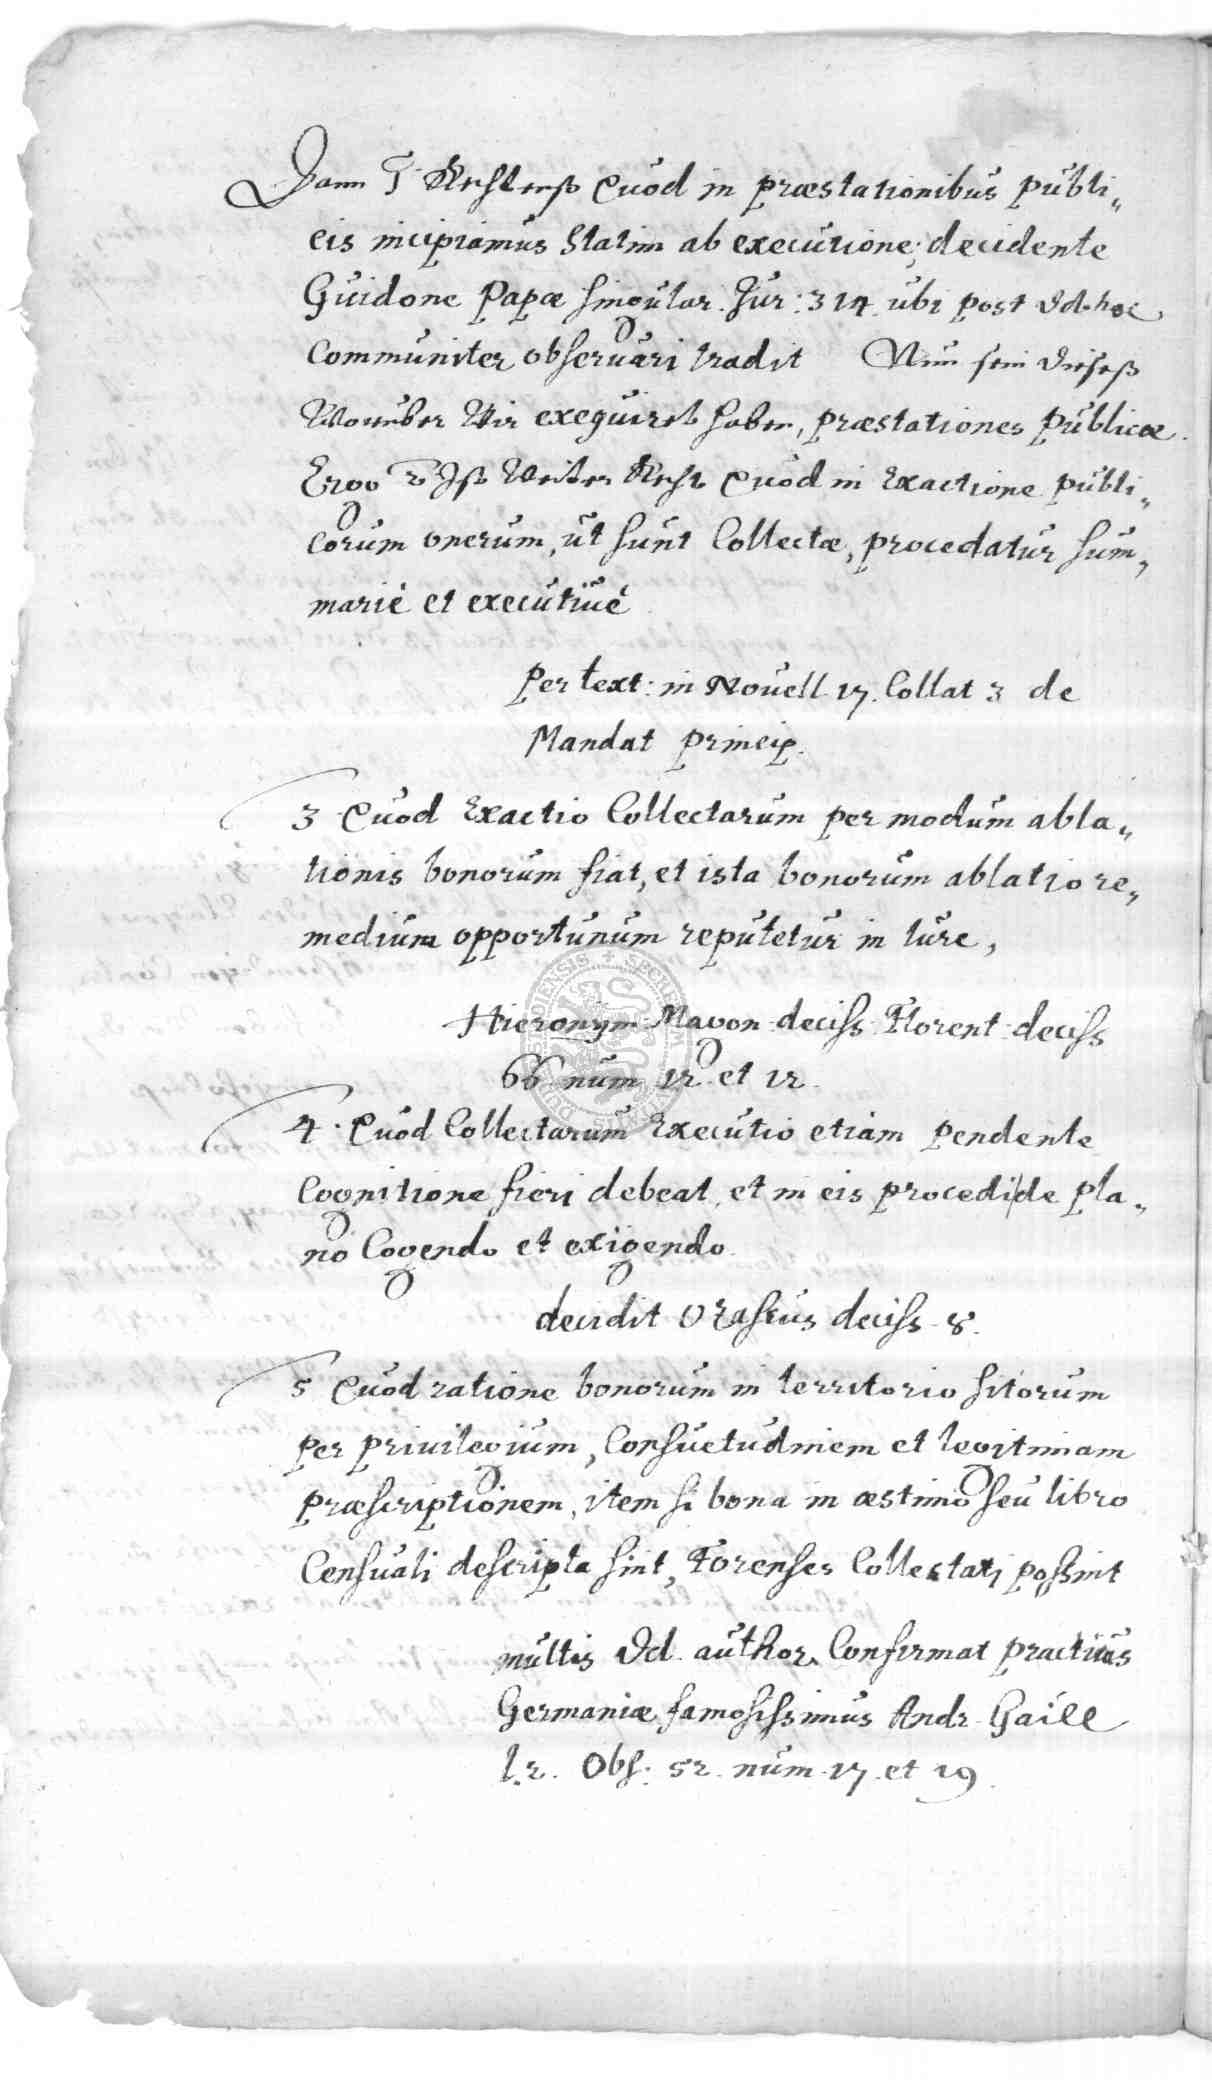 Dann 1 Rechtenß Quod in præstationibus publi„
cis incipiamus statim ab executione, decidente
Guidone Papæ singular. Jur: 314. ubi post Id. hoc
Communiter observari tradit Nun sein dieses
Worüber Wir exequiret haben, præstationes publicæ.
Ergo 2 Ist Weiter Recht Quod in Exactione publi„
corum onerum, ut sunt Collectæ, procedatur sum„
mariè et executivè
Per text: in Novell. 17. Collat 3 de
Mandat princip.
3 Quod Exactio Collectarum per modum abla„
tionis bonorum fiat, et ista bonorum ablatio re„
medium opportunum reputetur in Iure,
Hieronym: Magon: deciss: Florent: deciss
66 num 12. et 12.
4. Quod Collectarum Executio etiam pendente
Cognitione fieri debeat, et in eis procedi de pla„
no Cogendo et exigendo.
decidit deciss. 8.
5 Quod ratione bonorum in territorio sitorum
per privilegium, Consuetudinem et legitimam
præscriptionem, item si bona in æstimo seu libro
Censuali descripta sint, Forenses Collectari possint
multis Id. author. Confirmat practicus
Germaniæ famosissimus Andr. Gaill
l. 2. Obs: 52. num. 17. et 19.